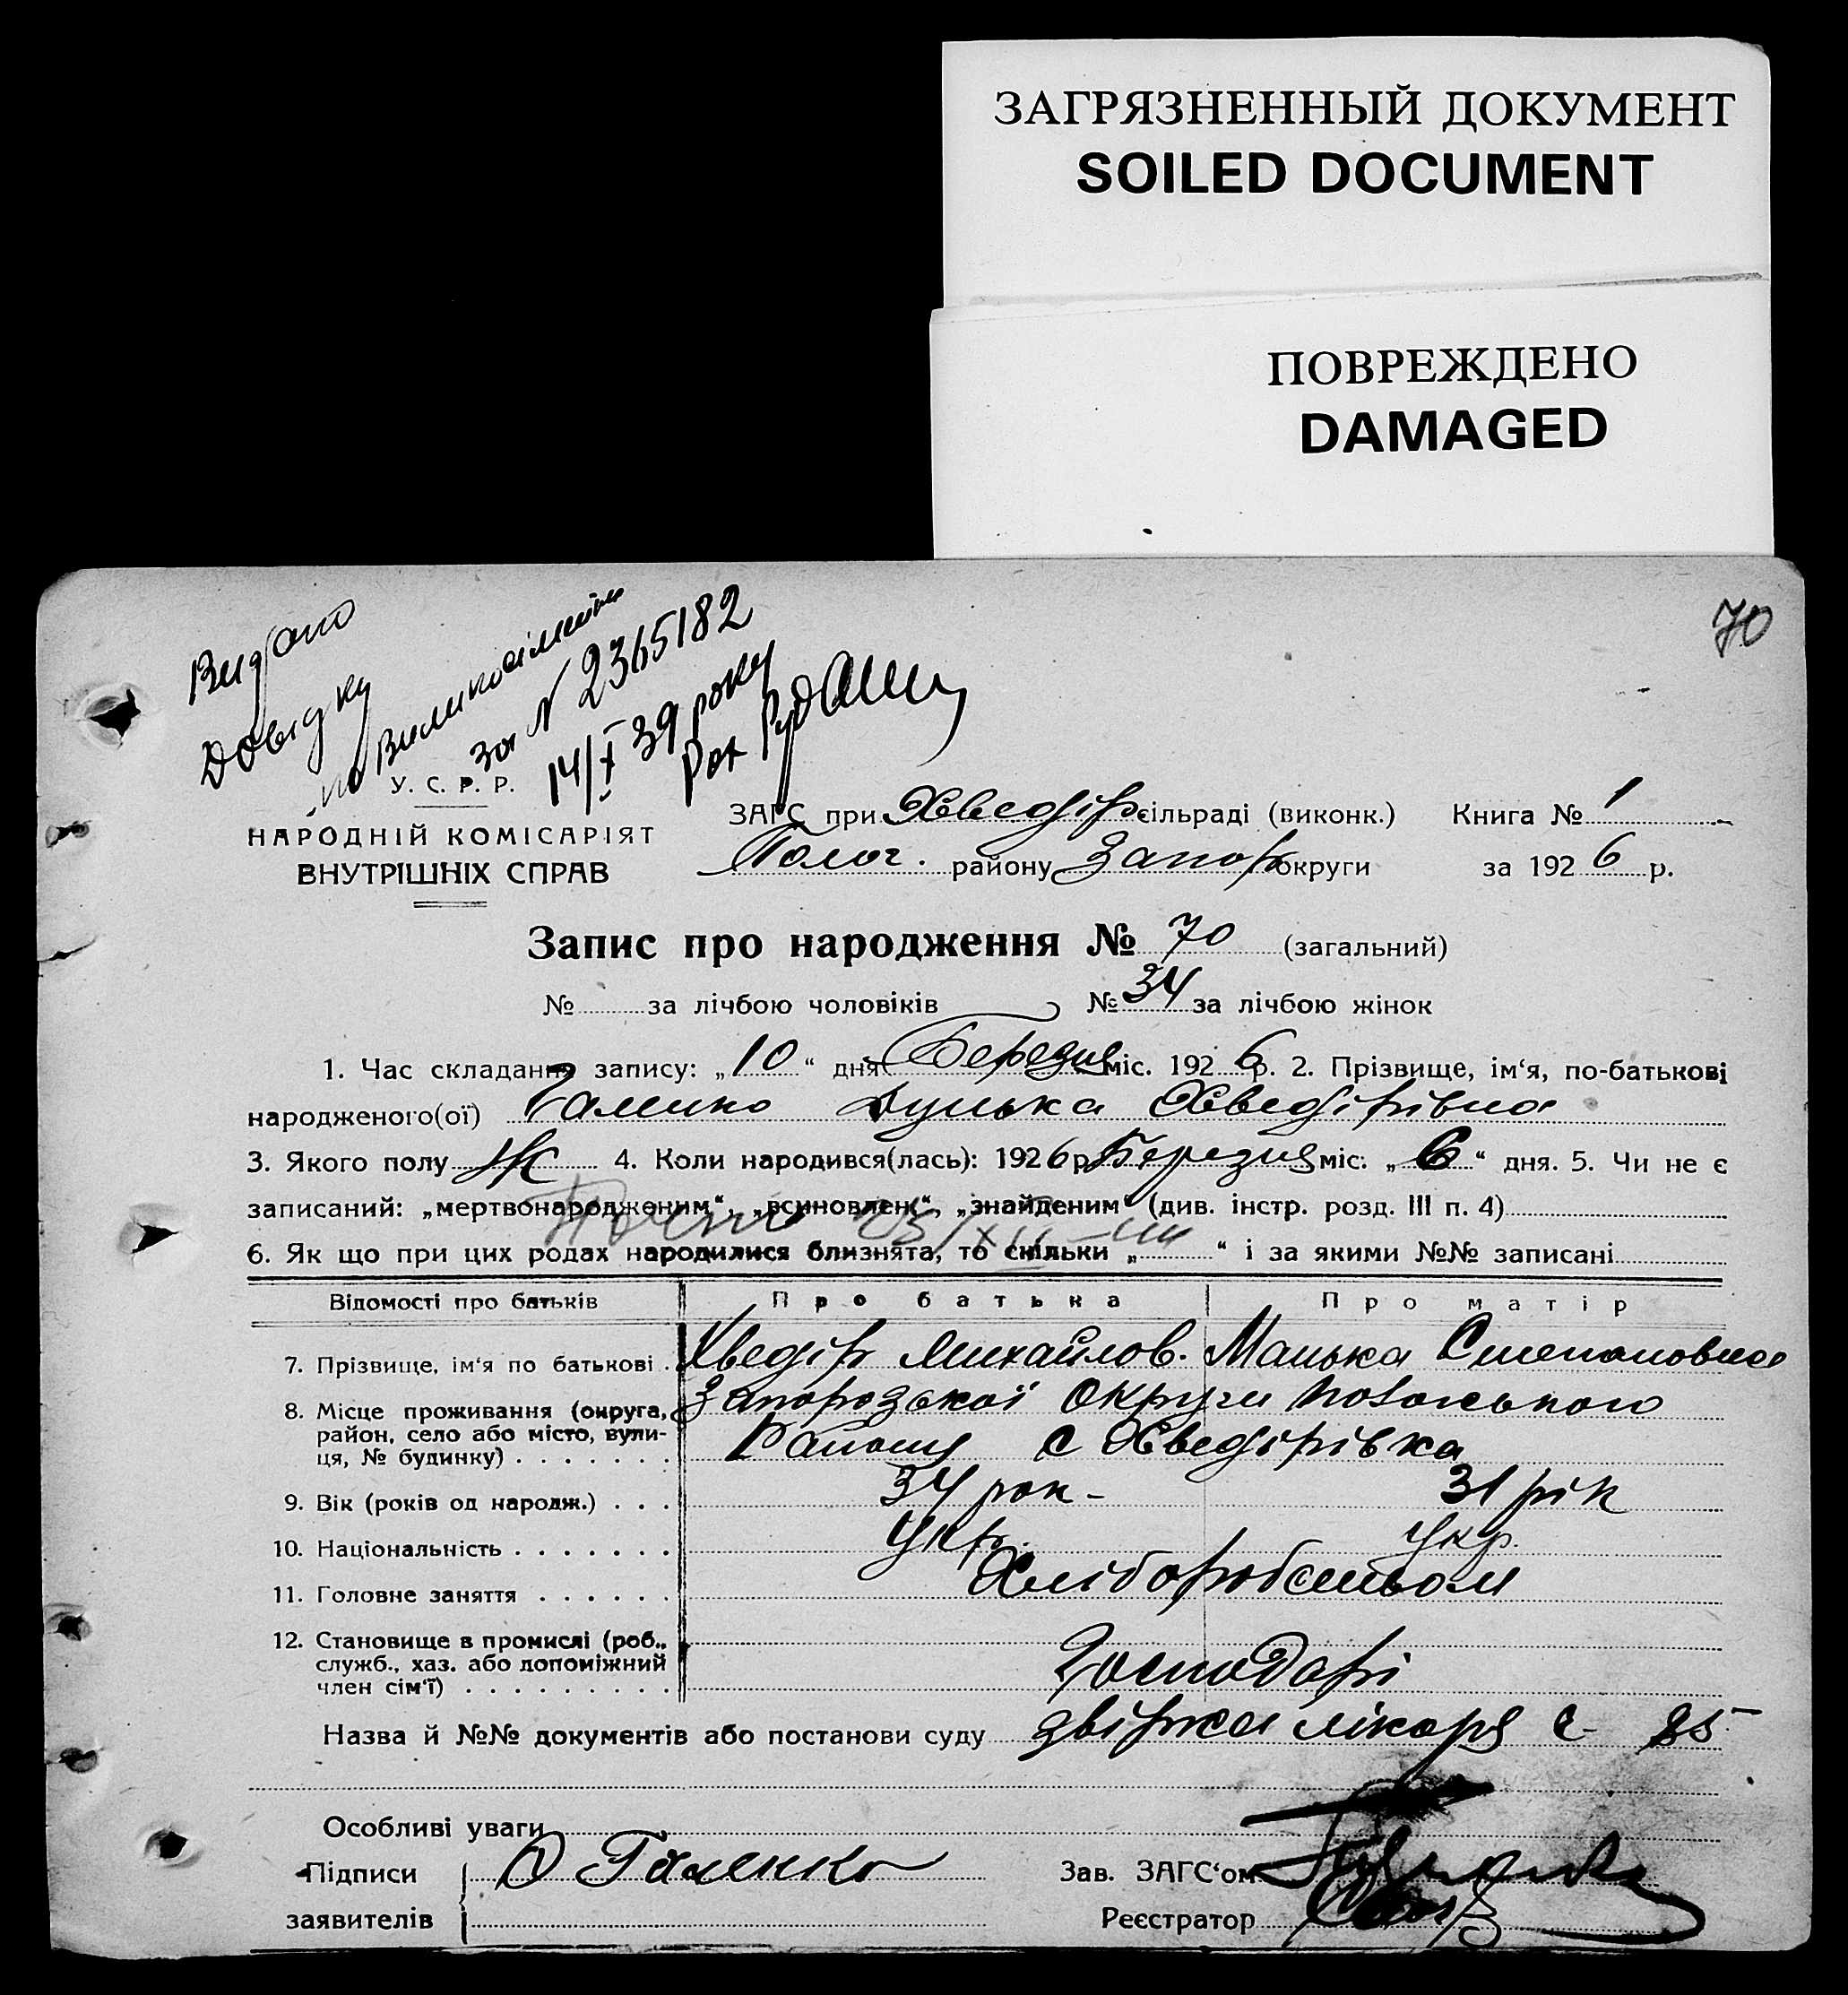 ЗАГРЯЗНЕННЫЙ ДОКУМЕНТ
SOILED DOCUMENT
ПОВРЕЖДЕНО
DAMAGED
70
Видано
Довідку
по
за № 2365182
14/X 39 року
У. С. Р. Р.
НАРОДНІЙ КОМІСАРІЯТ
ВНУТРІШНІХ СПРАВ
ЗАГС при Хведір сільраді (виконк.) Книга № 1
Полог. району Запор округи за 1926 р.
Запис про народження № 70 (загальний)
№ за лічбою чоловіків № 34 за лічбою жінок
1. Час складання запису: „10“ дня Березня міс. 1926 р. 2. Прізвище, ім‘я, по-батькові
народженого(ої) Хведірівна
3. Якого полу Ж 4. Коли народився(лась): 1926 р Березня міс. „6“ дня. 5. Чи не є
записаний: „мертвонародженим“, „всиновлен“, „знайденим“ (див. інстр. розд. III п. 4)
6. Як що при цих родах народилися близнята, то скільки „ “ і за якими №№ записані
Відомості про батьків Про батька Про матір
7. Прізвище, ім‘я по батькові Хведір Михайлов. Манька Степановна
8. Місце проживання (округа, район, село або місто, вулиця, № будинку) Запорозької Округи
Району с Хведірівка
9. Вік (років од народж.) 34 рок- 31 рік
10. Національність Укр. Укр.
11. Головне заняття Хліборобством
12. Становище в промислі (роб., служб., хаз. або допоміжний член сім‘ї) Господарі
Назва й №№ документів або постанови суду лікаря с- 85
Особливі уваги
Підписи О Галенко Зав. ЗАГС‘ом
заявителів Реєстратор